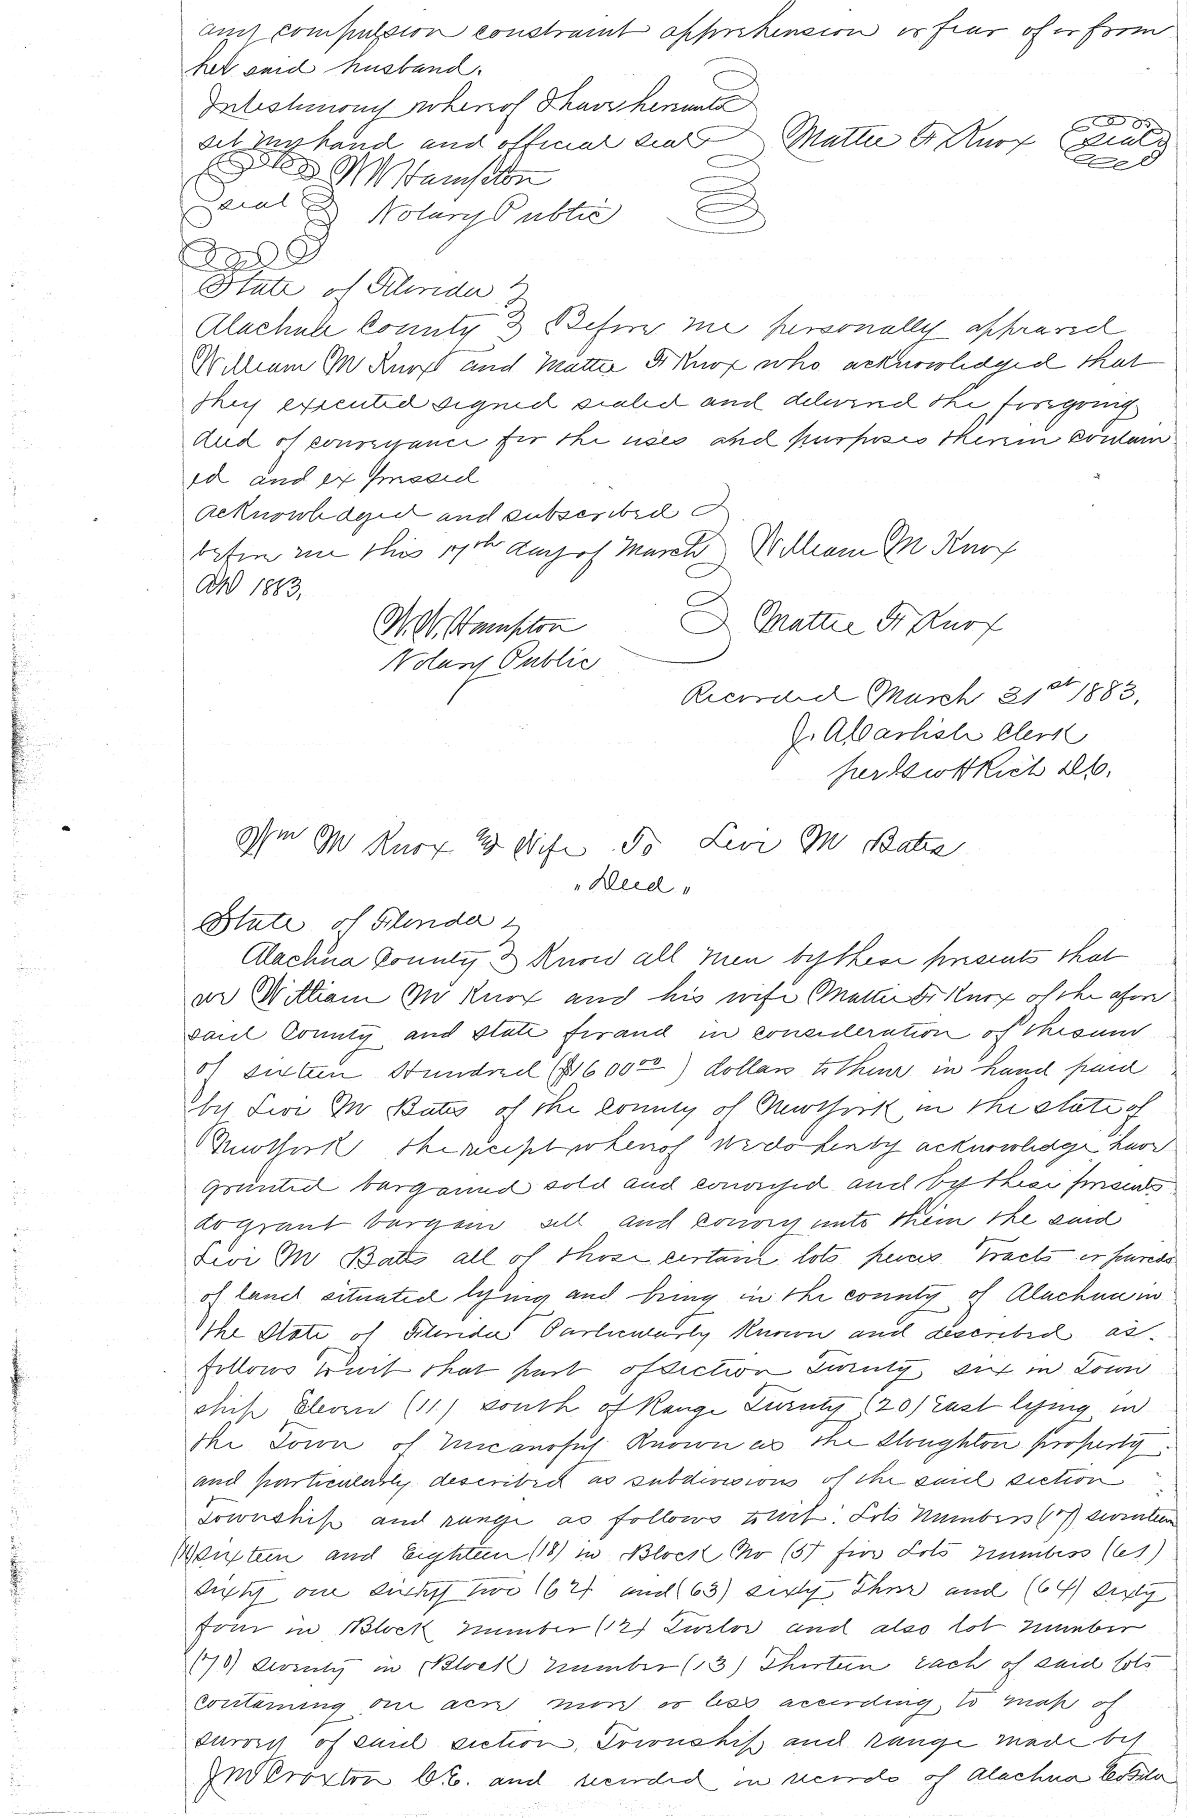 any compulsion constraint apprehension or fear of or from
her said husband.
In testimony whereof I have hereunto
set my hand and official seal Mattie F Knox Seal
W W Hampton
Seal Notary Public
State of Florida
Alachua County Before me personally appeared
William M Knox and Mattie F Knox who acknowledged that
they executed signed sealed and delivered the foregoing
deed of conveyance for the uses and purposes therein contain
ed and expressed
acknowledged and subscribed
before me this 17th day of March William M Knox
AD 1883.
W. W. Hampton Mattie F Knox
Notary Public
Recorded March 21st 1883.
J. A Carlisle Clerk
per DC.
Wm M Knox & Wife To Levi M Bates
"Deed"
State of Florida
Alachua County Know all men by these presents that
we William M Knox and his wife Mattie F Knox of the afore
said County and state for and in consideration of the sum
of sixteen Hundred ($1600 00) dollars to them in hand paid
by Levi M Bates of the County of New York in the state of
New York the reciept whereof we do hereby acknowledge have
granted bargained sold and conveyed and by these presents
do grant bargain sell and convey unto them the said
Levi M Bates all of those certain lots peices Tracts or parcels
of land situated lying and being in the county of Alachua in
the State of Florida Particularly Known and described as
follows towit that part of section Twenty six in Town
ship Eleven (11) south of Range Twenty (20) East lying in
the Town of Micanopy Known as the Stoughton property
and particularly described as subdivisions of the said section
Township and range as follows towit: Lots Numbers (17) seventeen
(16) sixteen and Eighteen (18) in Block No (5) five Lots numbers (61)
sixty one sixty two (62) and (63) sixty Three and (64) sixty
four in Block number (12) Twelve and also lot number
(70) seventy in Block number (13) Thirteen Each of said lots
containing one acre more or less according to map of
survey of said section, Township and range made by
J M Croxton C.E. and recorded in records of Alachua Co Fla